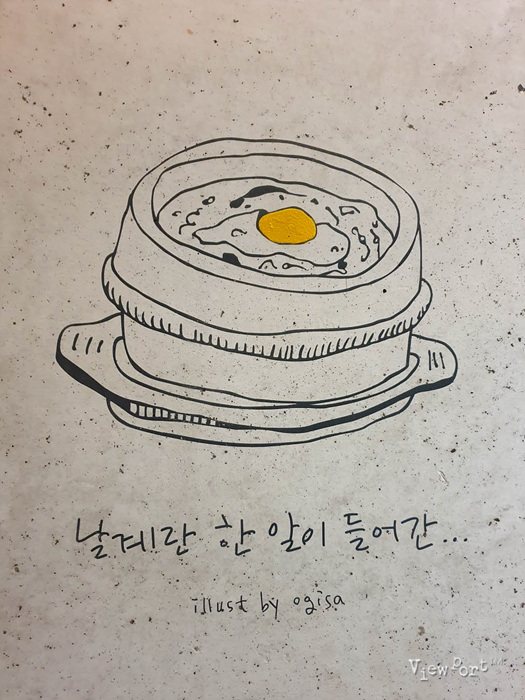 날계란 한 알이 들어간...
illust by ogisa
ViewPort